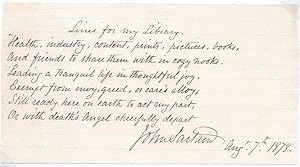 Lines for my Library.
Health, industry, content, prints, pictures, books,
And friends to share them with in cozy nooks.
Leading a tranquil life in thoughtful joy,
Exempt from envy, greed, or care's alloy;
Still ready here on earth to act my part,
Or with death's Angel cheerfully depart
John Sartain Augt. 7th 1878.